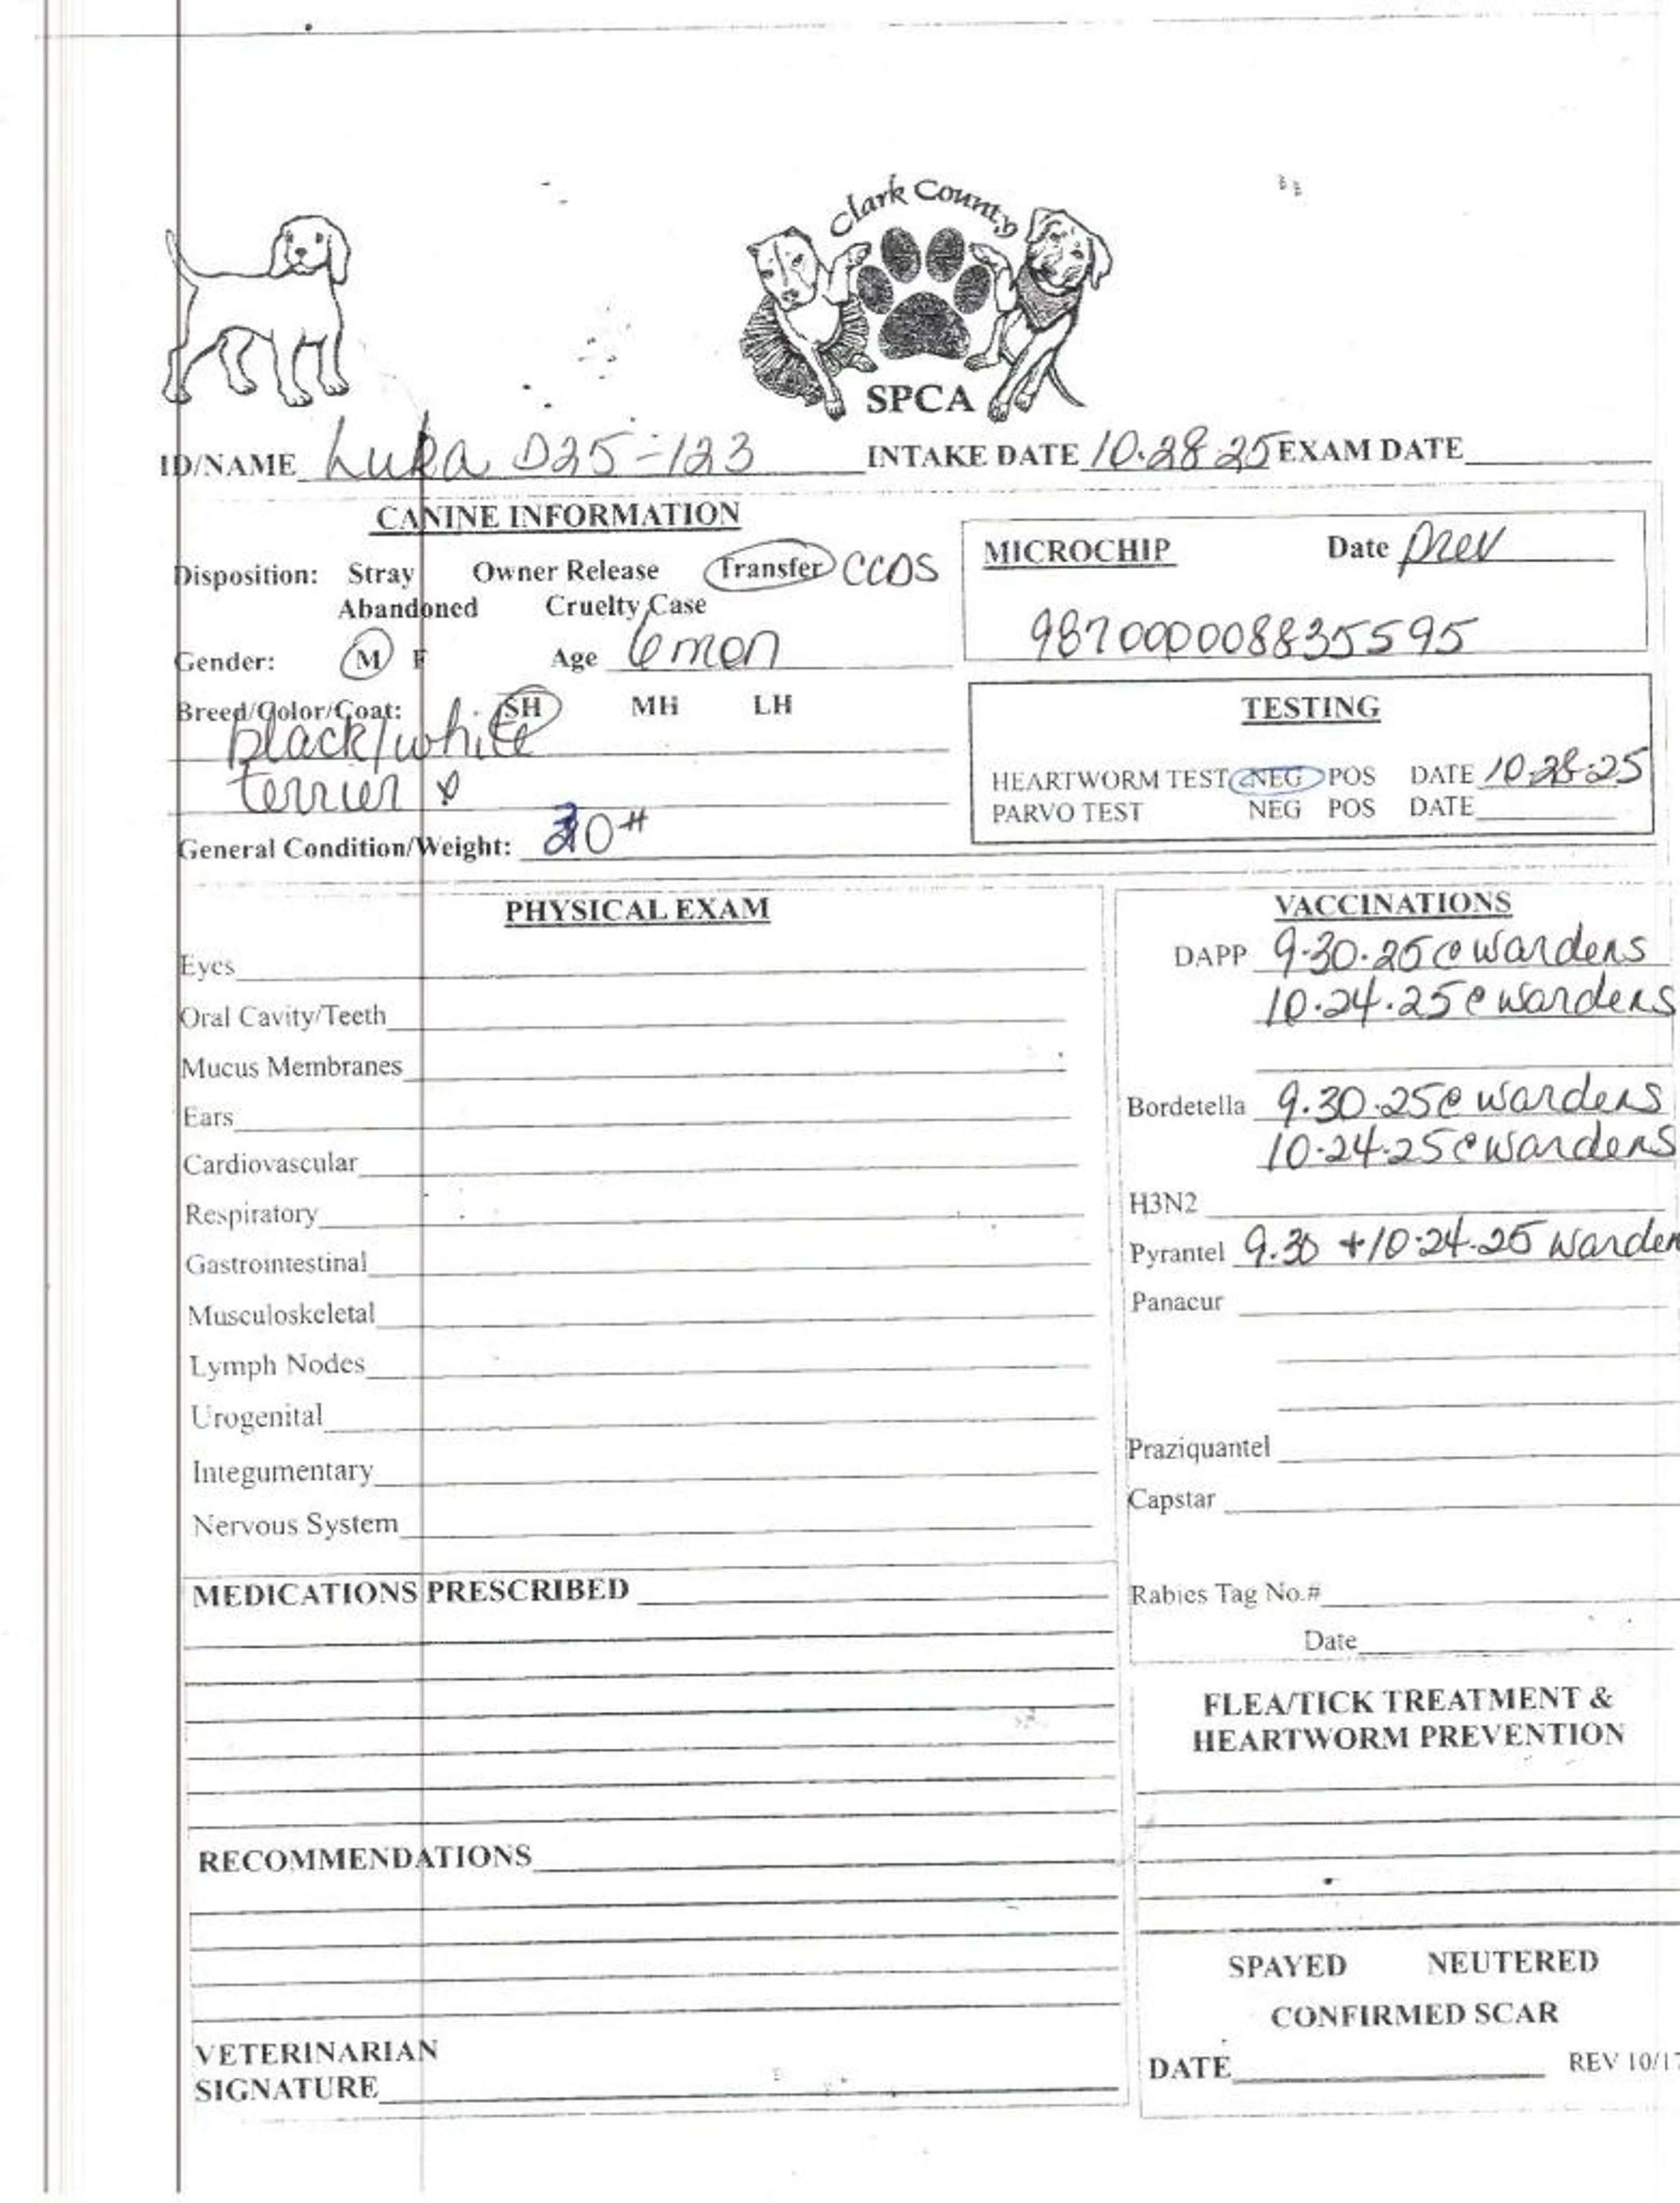 Clark County
SPCA
ID/NAME Luka D25-123 INTAKE DATE 10.28.25 EXAM DATE
CANINE INFORMATION
Disposition: Stray Owner Release Transfer CCDS
Abandoned Cruelty Case
Gender: M F Age 6 mon
Breed/Color/Coat: SH MH LH
black/white
terrier
General Condition/Weight: 0#
MICROCHIP Date prev
987000008835595
TESTING
HEARTWORM TEST NEG POS DATE 10.28.25
PARVO TEST NEG POS DATE
PHYSICAL EXAM
Eyes
Oral Cavity/Teeth
Mucus Membranes
Ears
Cardiovascular
Respiratory
Gastrointestinal
Musculoskeletal
Lymph Nodes
Urogenital
Integumentary
Nervous System
MEDICATIONS PRESCRIBED
RECOMMENDATIONS
VETERINARIAN
SIGNATURE
VACCINATIONS
DAPP 9.30.25 @ wardens
10.24.25 @ wardens
Bordetella 9.30.25 @ wardens
10.24.25 @ wardens
H3N2
Pyrantel 9.30 + 10.24.25 warden
Panacur
Praziquantel
Capstar
Rabies Tag No.#
Date
FLEA/TICK TREATMENT &
HEARTWORM PREVENTION
SPAYED NEUTERED
CONFIRMED SCAR
DATE REV 10/17